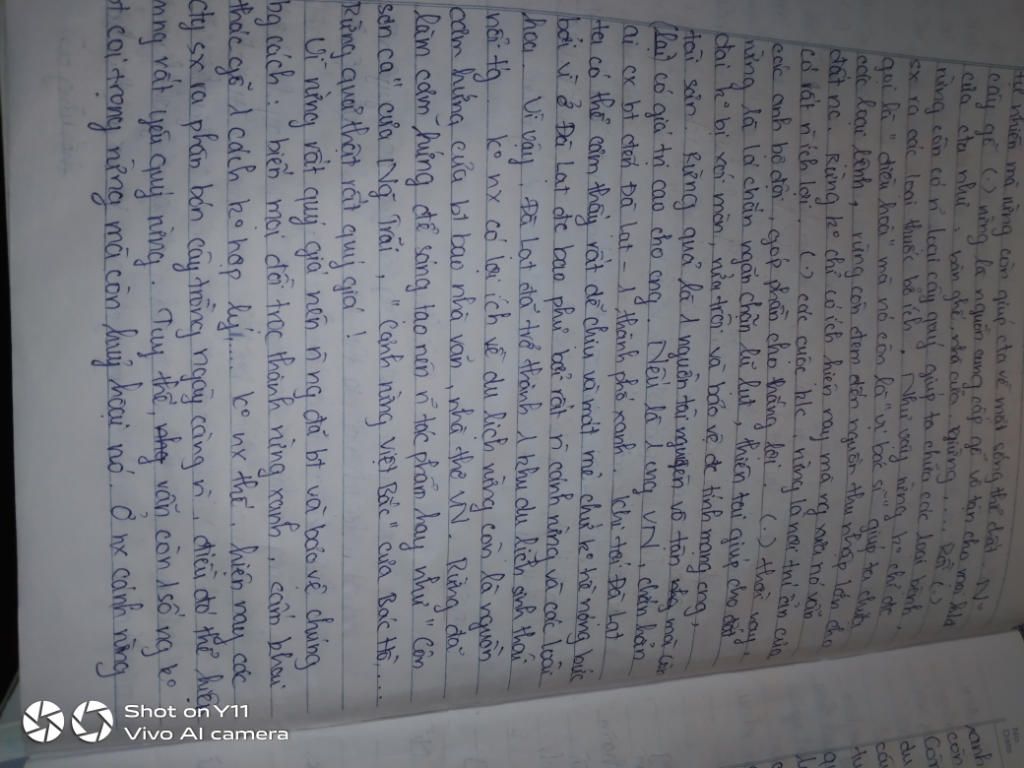 mà rừng còn giúp cta về mặt công thế đất. N°
cây gỗ (.) rừng là nguồn cung cấp gỗ vô tận cho mọi nhà
của cta như: bàn ghế, nhà cửa, giường,... Rồi (.)
rừng còn có n̄ loại cây quý giúp ta chữa các loại bệnh,
sx ra các loại thuốc bổ ích. Như vậy rừng ko chỉ đc
gọi là "điều hoà" mà nó còn là "vị bác sĩ" giúp ta chữa
các loại bệnh, rừng còn đem đến nguồn thu nhập lớn cho
đất nc. Rừng ko chỉ có ích hiện nay mà ng` xưa nó vẫn
có rất n̄ ích lợi. (.) các cuộc k/c, rừng là nơi trú ẩn của
các anh bộ đội, góp phần cho thắng lợi. (.) thời nay,
rừng là lá chắn ngăn chặn lũ lụt, thiên tai giúp cho đất
đai ko bị xói mòn, nứa trôi và bảo vệ đc tính mạng con ng,
tài sản. Rừng quả là 1 nguồn tài nguyên vô tận mà có
lại có giá trị cao cho cng. Nếu là 1 cng VN, chắc hẳn
ai cx bt đến Đà Lạt - 1 thành phố xanh. Khi tới Đà Lạt
ta có thể cảm thấy rất dễ chịu và mát mẻ chứ ko hề nóng bức
bởi vì ở Đà Lạt đc bao phủ bởi rất n̄ cánh rừng và các loài
hoa. Vì vậy, Đà Lạt đã trở thành 1 khu du lịch sinh thái
nổi tg. Ko nx có lợi ích về du lịch rừng còn là nguồn
cảm hứng của bt bao nhà văn, nhà thơ VN. Rừng đã
làm cảm hứng để sáng tạo nên n̄ tác phẩm hay như "Côn
sơn ca" của Ng Trãi, "Cảnh rừng Việt Bắc" của Bác Hồ,...
Rừng quả thật rất quý giá!
Vì rừng rất quý giá nên n̄ ng đã bt và bảo vệ chúng
bg cách: biến mọi đồi trọc thành rừng xanh, cấm phá
thác gỗ 1 cách ko hợp lý,... ko nx thế, hiện nay các
cty sx ra phân bón cây trồng ngày càng n̄, điều đó thể hiện
mng rất yêu quý rừng. Tuy thế, vẫn còn 1 số ng ko
coi trọng rừng mà còn huỷ hoại nó. Ở nx cánh rừng
Shot on Y11
Vivo AI camera